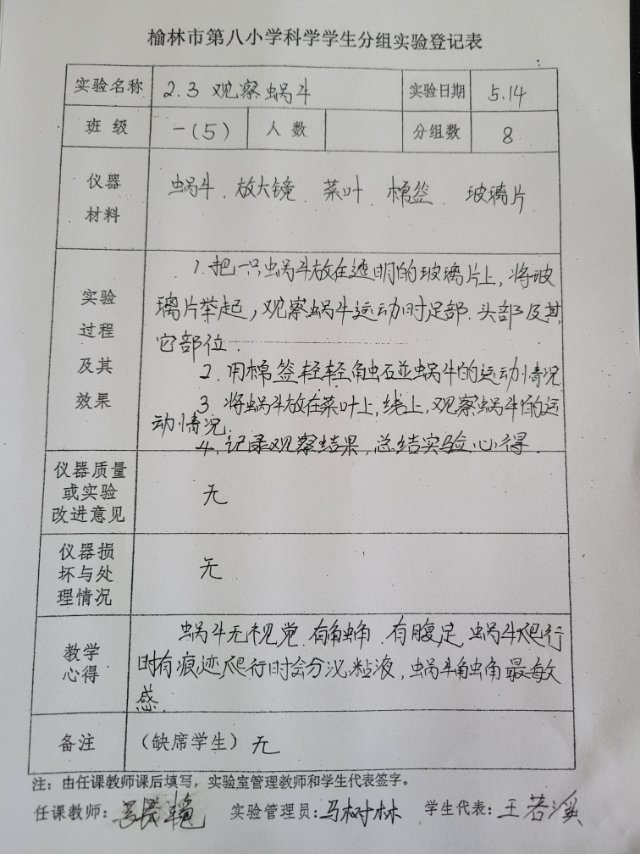 榆林市第八小学科学学生分组实验登记表
实验名称 2.3 观察蜗牛 实验日期 5.14
班 级 一(5) 人 数 分组数 8
仪器
材料
蜗牛、放大镜、菜叶、棉签、玻璃片
实验
过程
及其
效果
1.把一只蜗牛放在透明的玻璃片上,将玻
璃片举起,观察蜗牛运动时足部.头部及其
它部位.
2.用棉签轻轻触碰蜗牛的运动情况
3.将蜗牛放在菜叶上,线上,观察蜗牛的运
动情况.
4.记录观察结果,总结实验心得.
仪器质量
或实验
改进意见
无
仪器损
坏与处
理情况
无
教学
心得
蜗牛无视觉.有触角.有腹足,蜗牛爬行
时有痕迹爬行时会分泌粘液,蜗牛触角最敏
感.
备注 (缺席学生) 无
注:由任课教师课后填写,实验室管理教师和学生代表签字。
任课教师: 实验管理员:马树林 学生代表:王若